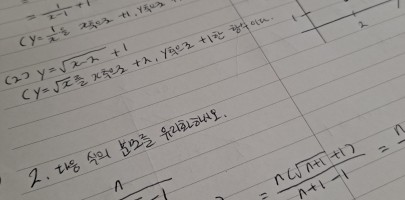 = 1/(x-1) + 1
(y = 1/x을 x축으로 +1, y축으로
(2) y = √(x-2) + 1
(y = √x를 x축으로 +2, y축으로 +1한 함수이다.
1
2
2. 다음 식의 분모를 유리화하시오.
n
= n(√(n+1)+1)/(n+1-1) = n